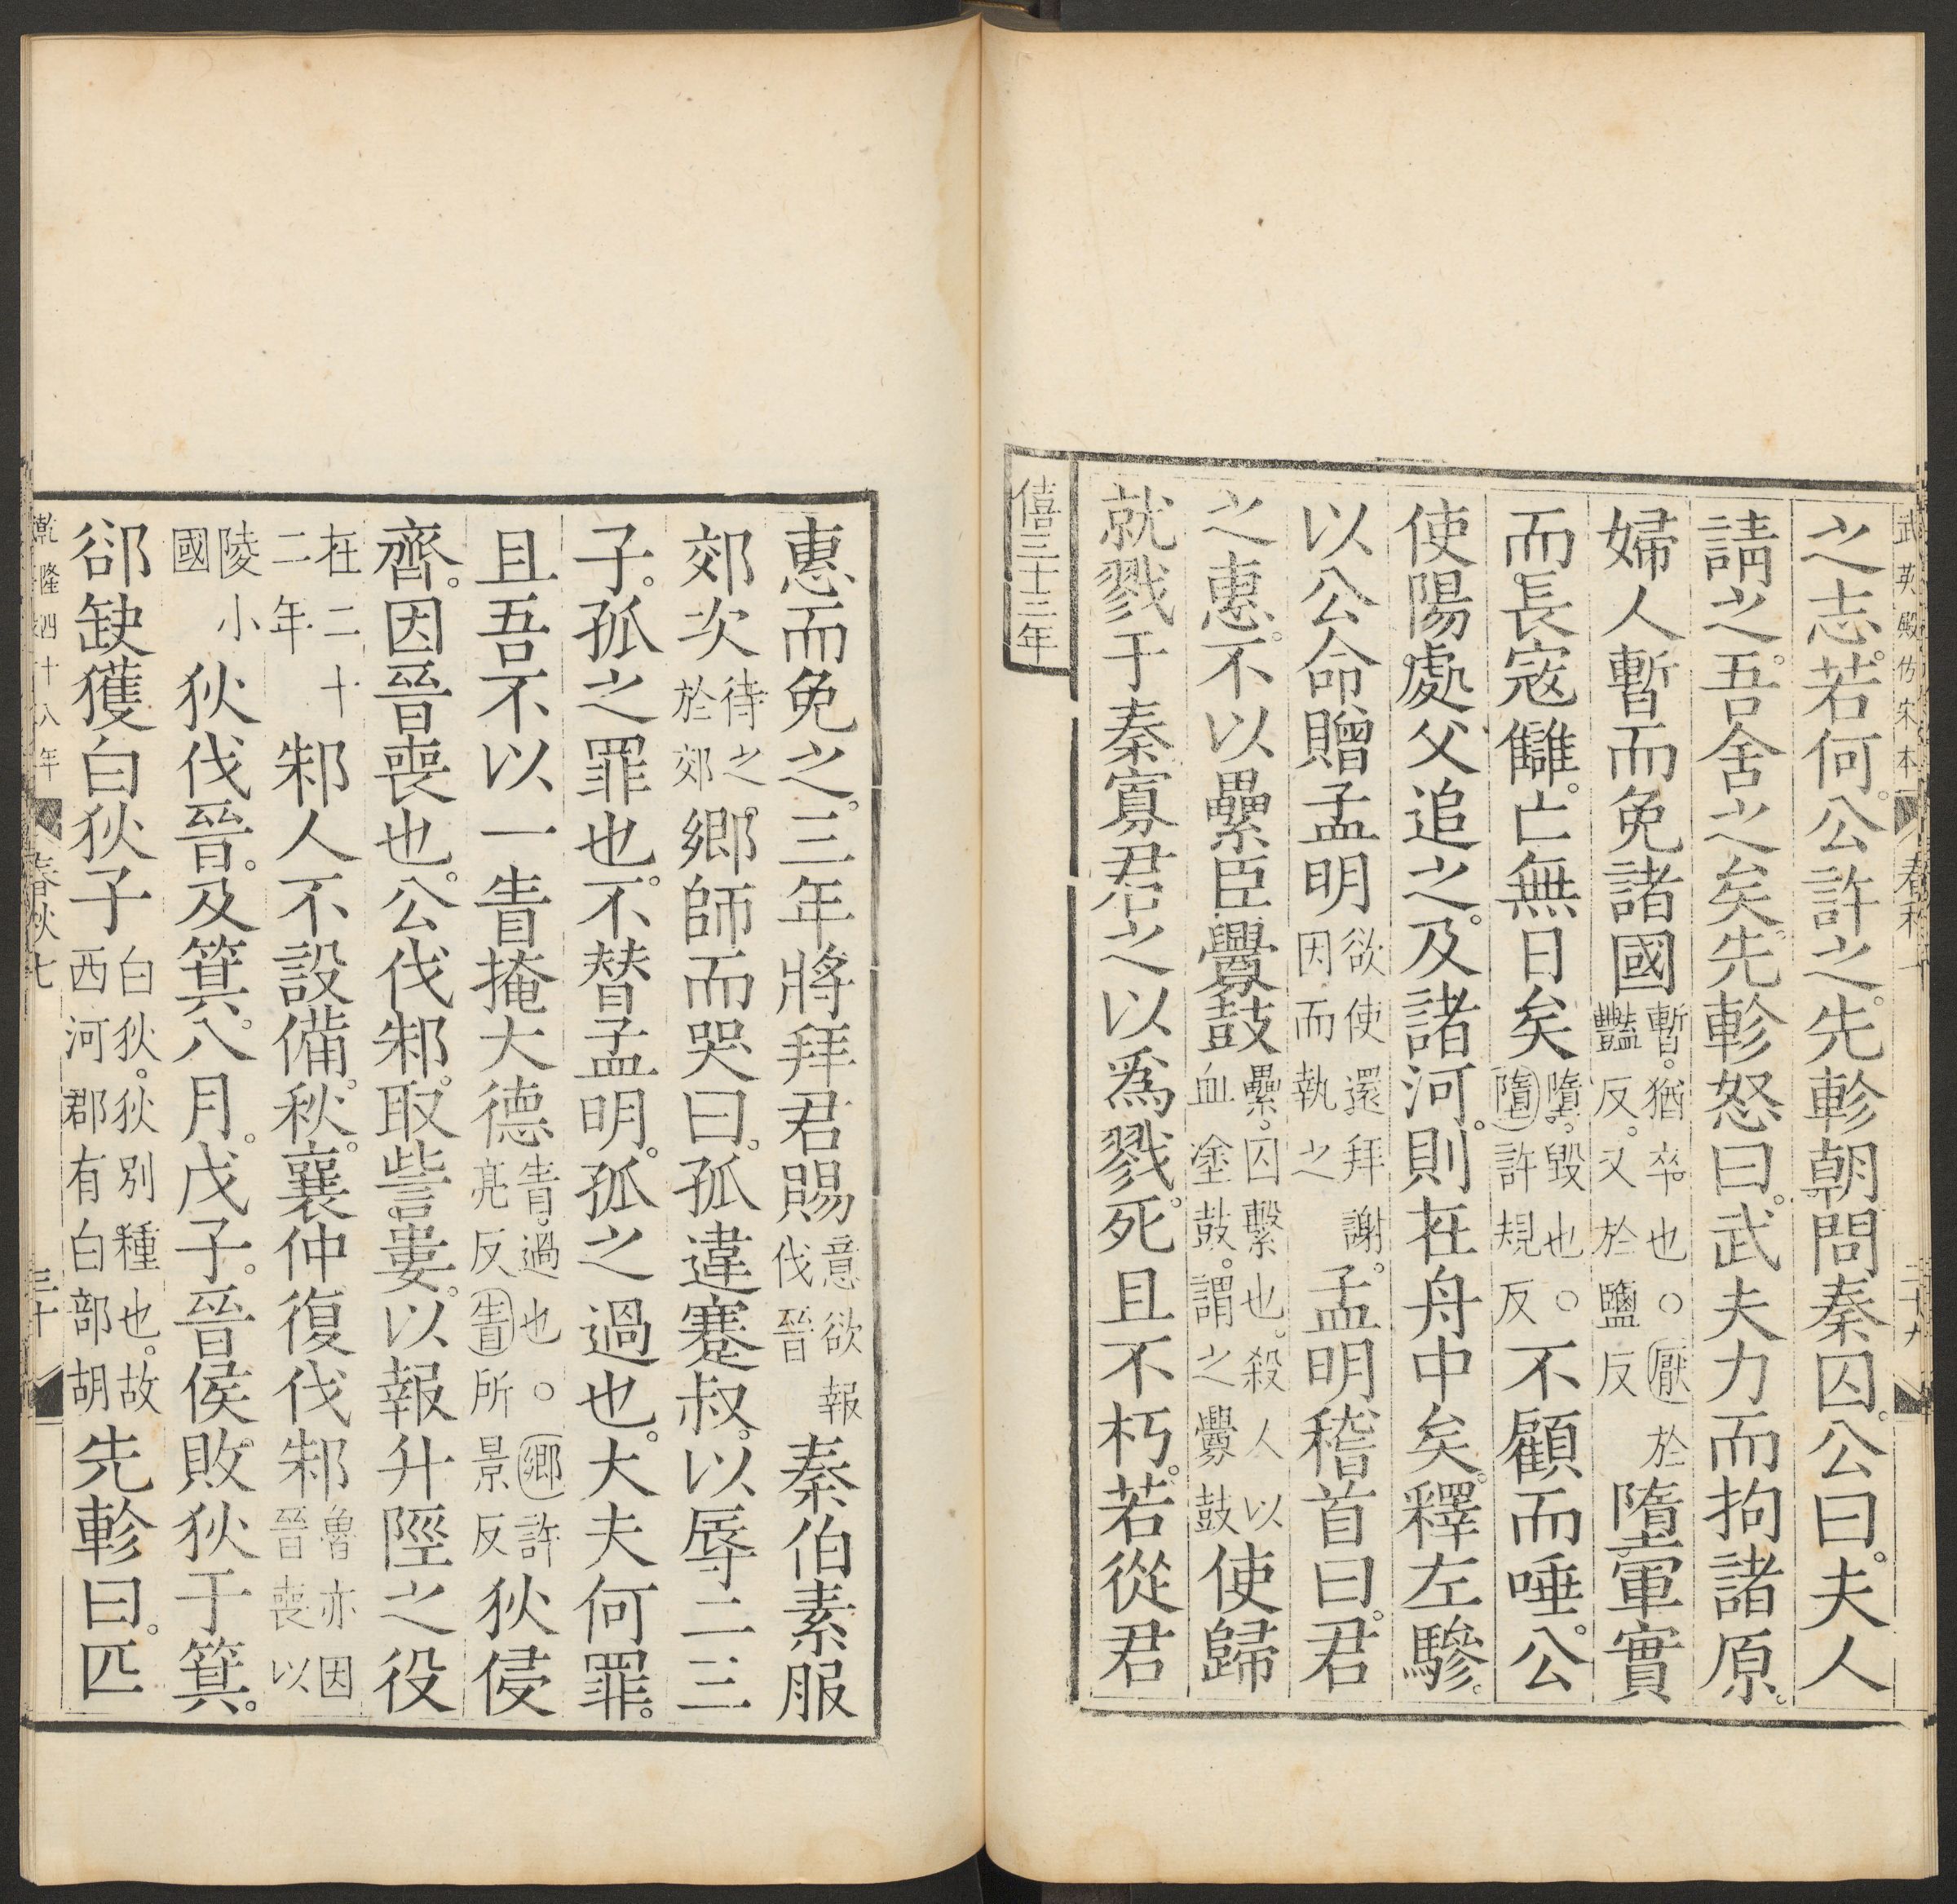 武英殿仿宋本
春秋
二十九
之志。若何。公許之。先軫朝問秦囚。公曰。夫人
請之。吾舍之矣。先軫怒曰。武夫力而拘諸原。
婦人暫而免諸國暫。猶卒也○厭於豔反。又於鹽反墮軍實
而長寇讎。亡無日矣墮。毀也○墮許規反不顧而唾。公
使陽處父追之。及諸河。則在舟中矣。釋左驂。
以公命贈孟明欲使還拜謝。因而執之孟明稽首曰。君
之惠。不以纍臣釁鼓纍。囚繫也。殺人以血塗鼓。謂之釁鼓使歸
就戮于秦寡君之以爲戮。死且不朽。若從君
僖三十三年
惠而免之。三年將拜君賜意欲報伐晉秦伯素服
郊次待之於郊。鄉師而哭曰。孤違蹇叔。以辱二三
子。孤之罪也。不替孟明。孤之過也。大夫何罪。
且吾不以一眚掩大德眚。過也○鄉許亮反眚所景反狄侵
齊。因晉喪也。公伐邾。取訾婁。以報升陘之役
在二十二年邾人不設備。秋。襄仲復伐邾魯亦因晉喪以
陵小國狄伐晉。及箕。八月。戊子。晉侯敗狄于箕。
郤缺獲白狄子白狄。狄別種也。故西河郡有白部胡先軫曰。匹
乾隆四十八年
春秋七
三十